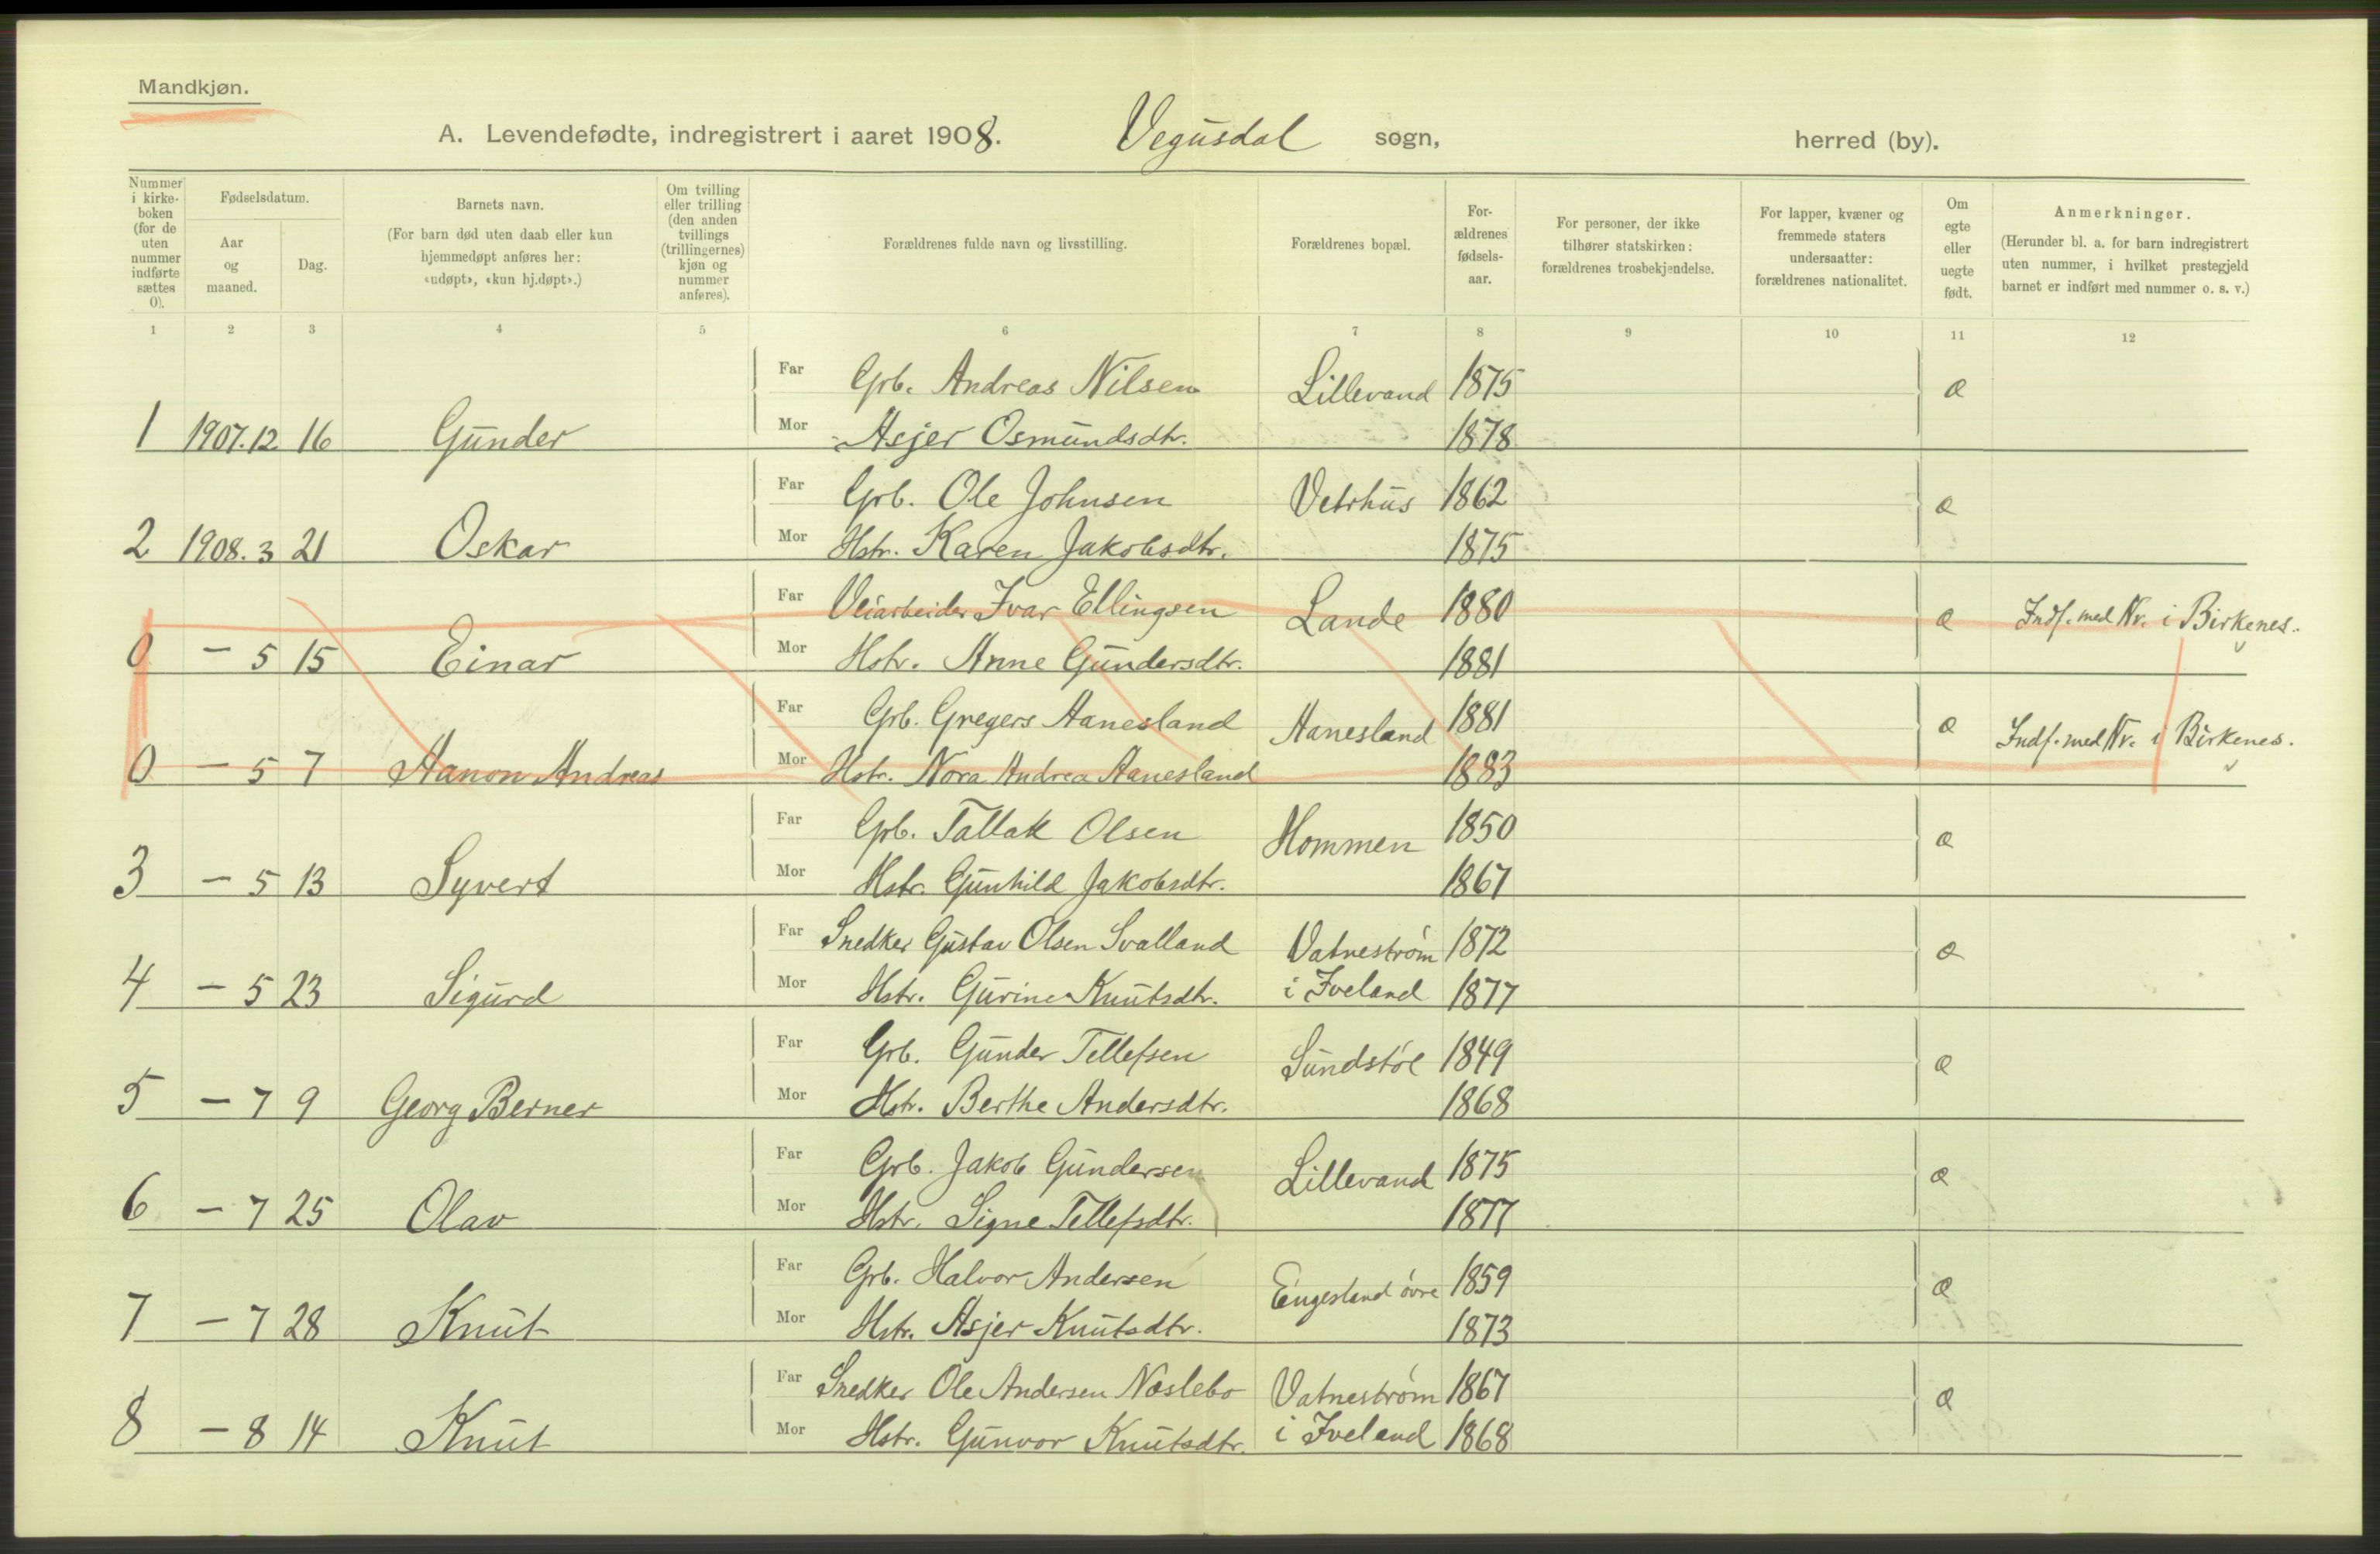 Mandkjøn.
A. Levendefødte, indregistrert i aaret 1908. Vegusdal sogn, herred (by).
Nummer i kirke-boken (for de uten nummer indførte sættes 0).
Fødselsdatum.
Aar og maaned.
Dag.
Barnets navn.
(For barn død uten daab eller kun hjemmedøpt anføres her: «udøpt», «kun hj.døpt».)
Om tvilling eller trilling (den anden tvillings (trillingernes) kjøn og nummer anføres).
Forældrenes fulde navn og livsstilling.
Forældrenes bopæl.
For-ældrenes fødsels-aar.
For personer, der ikke tilhører statskirken: forældrenes trosbekjendelse.
For lapper, kvæner og fremmede staters undersaatter: forældrenes nationalitet.
Om egte eller uegte født.
Anmerkninger.
(Herunder bl. a. for barn indregistrert uten nummer, i hvilket prestegjeld barnet er indført med nummer o. s. v.)
1 2 3 4 5 6 7 8 9 10 11 12
Far Grb. Andreas Nilsen Lillevand 1875 æ
1 1907.12 16 Gunder Mor Asjer Osmundsdtr. 1878
Far Grb. Ole Johnsen Vetrhus 1862 æ
2 1908. 3 21 Oskar Mor Hstr. Karen Jakobsdtr. 1875
Far Veiarbeider Ivar Ellingsen Lande 1880 æ Indf. med Nr. i Birkenes.
0 — 5 15 Einar Mor Hstr. Anne Gundersdtr. 1881
Far Grb. Gregers Aanesland Aanesland 1881 æ Indf. med Nr. i Birkenes.
0 — 5 7 Aanon Andreas Mor Hstr. Nora Andrea Aanesland 1883
Far Grb. Tallak Olsen Hommen 1850 æ
3 — 5 13 Syvert Mor Hstr. Gunhild Jakobsdtr. 1867
Far Snedker Gustav Olsen Svalland Vatneström 1872 æ
4 — 5 23 Sigurd Mor Hstr. Gurine Knutsdtr. i Iveland 1877
Far Grb. Gunder Tellefsen Sundstöl 1849 æ
5 — 7 9 Georg Berner Mor Hstr. Berthe Andersdtr. 1868
Far Grb. Jakob Gundersen Lillevand 1875 æ
6 — 7 25 Olav Mor Hstr. Signe Tellefsdtr. 1877
Far Grb. Halvor Andersen Engesland övre 1859 æ
7 — 7 28 Knut Mor Hstr. Asjer Knutsdtr. 1873
Far Snedker Ole Andersen Næslebo Vatneström 1867 æ
8 — 8 14 Knut Mor Hstr. Gunvor Knutsdtr. i Iveland 1868